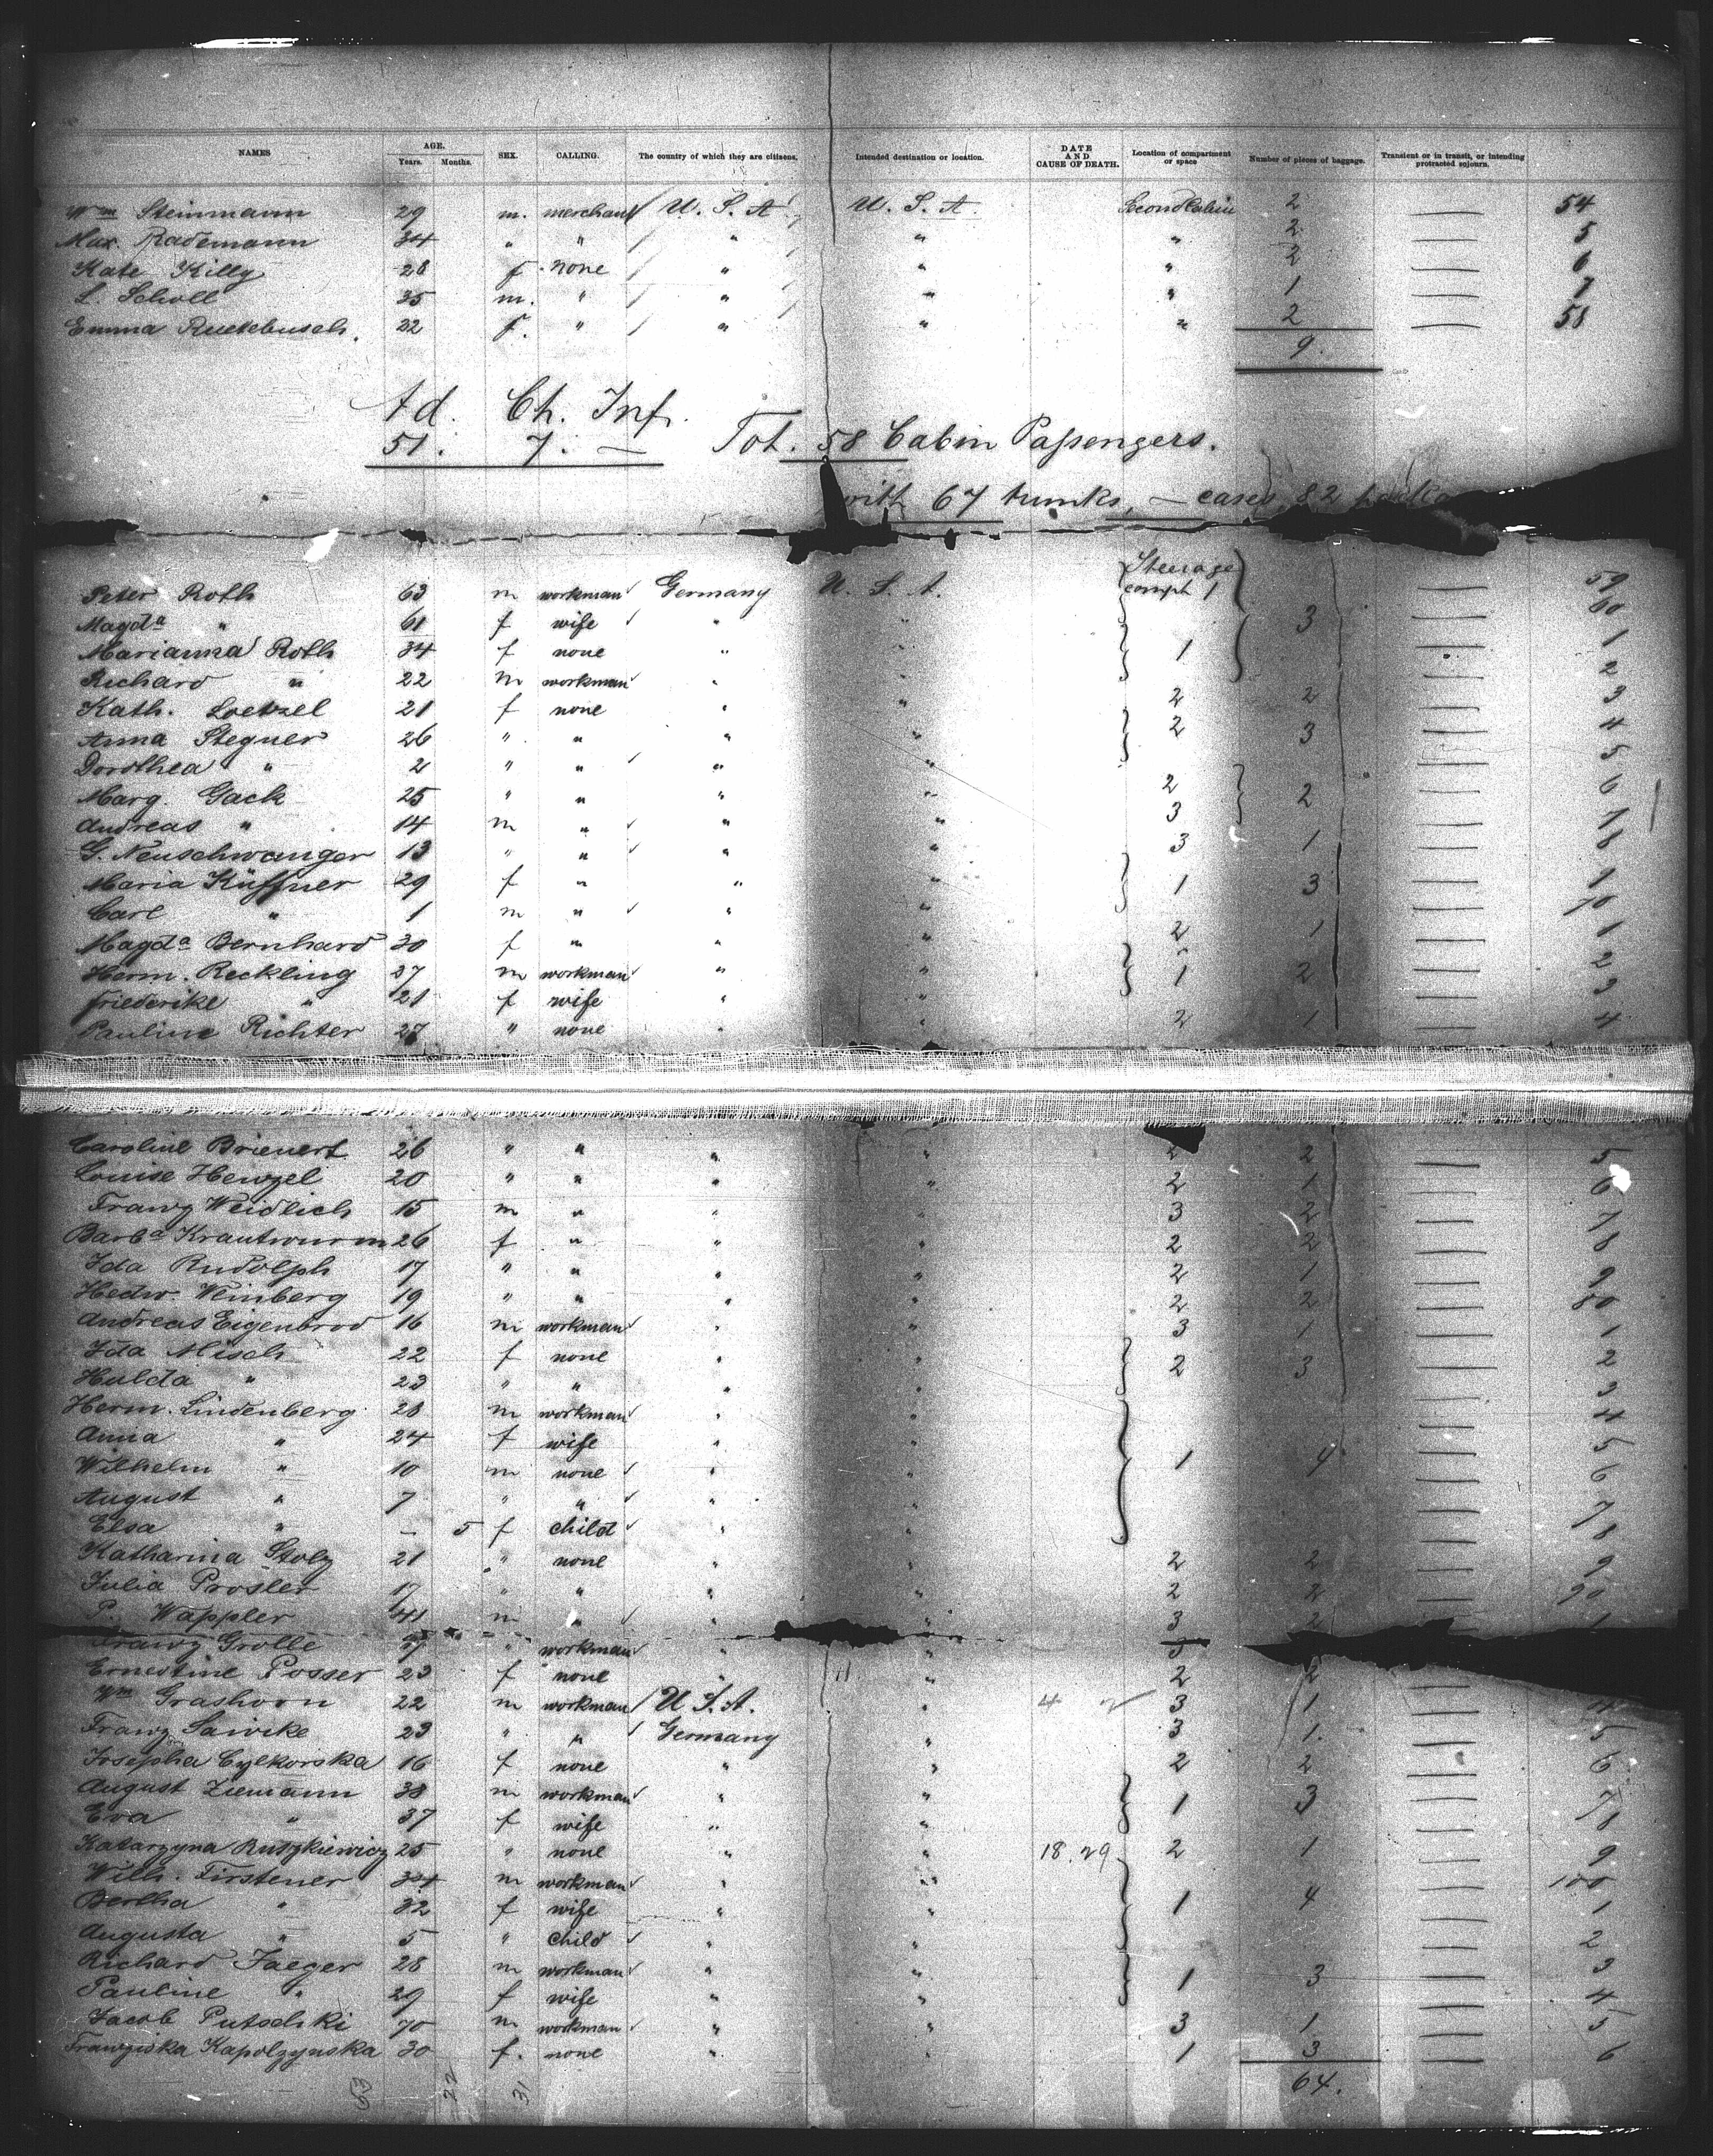 NAMES AGE. Years. Months. SEX. CALLING. The country of which they are citizens. Intended destination or location. DATE AND CAUSE OF DEATH. Location of compartment or space Number of pieces of baggage. Transient or in transit, or intending protracted sojourn.
Wm Steinmann 29 m. merchant U. S. A. U. S. A. Second Cabin 2 — 54
Max Rademann 34 " " " " " 2 — 5
Kate Killy 28 f. none " " " 2 — 6
L. Scholl 35 m. " " " " 1 — 7
Emma Ruckbusch. 22 f. " " " " 2 — 58
9.
Ad. Ch. Inf.
51. 7. — Tot. 58 Cabin Passengers.
with 67 trunks, — cases, 82
Peter Roth 63 m workman Germany U. S. A. Steerage compt 1 — 59
Magda " 61 f wife " " 3 — 60
Marianna Roth 34 f none " " 1 — 1
Richard " 22 m workman " " — 2
Kath. Loetzel 21 f none " " 2 2 — 3
Anna Stegner 26 " " " " 2 3 — 4
Dorothea " 2 " " " " — 5
Marg. Gack 25 " " " " 2 2 — 6
Andreas " 14 m " " " 3 — 7
G. Neuschwanger 13 " " " " 3 1 — 8
Maria Küffner 29 f " " " 1 3 — 9
Carl " 1 m " " " — 70
Magda Bernhard 30 f " " " 2 1 — 1
Herm. Reckling 27 m workman " " 1 2 — 2
Friederike " 21 f wife " " — 3
Pauline Richter 27 " none " " 2 1 — 4
Caroline Brienert 26 " " " " 2 2 — 5
Louise Henzel 20 " " " " 2 1 — 6
Franz Weidlich 15 m " " " 3 2 — 7
Barba Krautwurm 26 f " " " 2 2 — 8
Ida Rudolph 17 " " " " 2 1 — 9
Hedw. Weinberg 19 " " " " 2 2 — 80
Andreas Eigenbrod 16 m workman " " 3 1 — 1
Ida Misch 22 f none " " 2 3 — 2
Hulda " 23 " " " " — 3
Herm. Lindenberg 28 m workman " " — 4
Anna " 24 f wife " " — 5
Wilhelm " 10 m none " " 1 4 — 6
August " 7 " " " " — 7
Elsa " – 5 f child " " — 8
Katharina Stolz 21 " none " " 2 2 — 9
Julia Prosler 17 " " " " 2 2 — 90
P. Wappler 41 m " " " 3 2 — 1
Franz Grolle " workman " " 3
Ernestine Posser 23 f none " " 2 2 —
Wm Grashorn 22 m workman U. S. A. " 4 3 1 — 4
Franz Sawicke 23 " " Germany " 3 1. — 5
Josepha Cylkorska 16 f none " " 2 2 — 6
August Ziemann 38 m workman " " 1 3 — 7
Eva " 37 f wife " " — 8
Katarzyna Rutzkiewicz 25 " none " " 18.29 2 1 — 9
Wilh. Firstener 34 m workman " " — 100
Bertha " 32 f wife " " 1 4 — 1
Augusta " 5 " child " " — 2
Richard Jaeger 28 m workman " " 1 3 — 3
Pauline " 29 f wife " " — 4
Jacob Putschki 70 m workman " " 3 1. — 5
Franziska Kapolzynska 30 f. none " " 1 3 — 6
53 22 31 64.